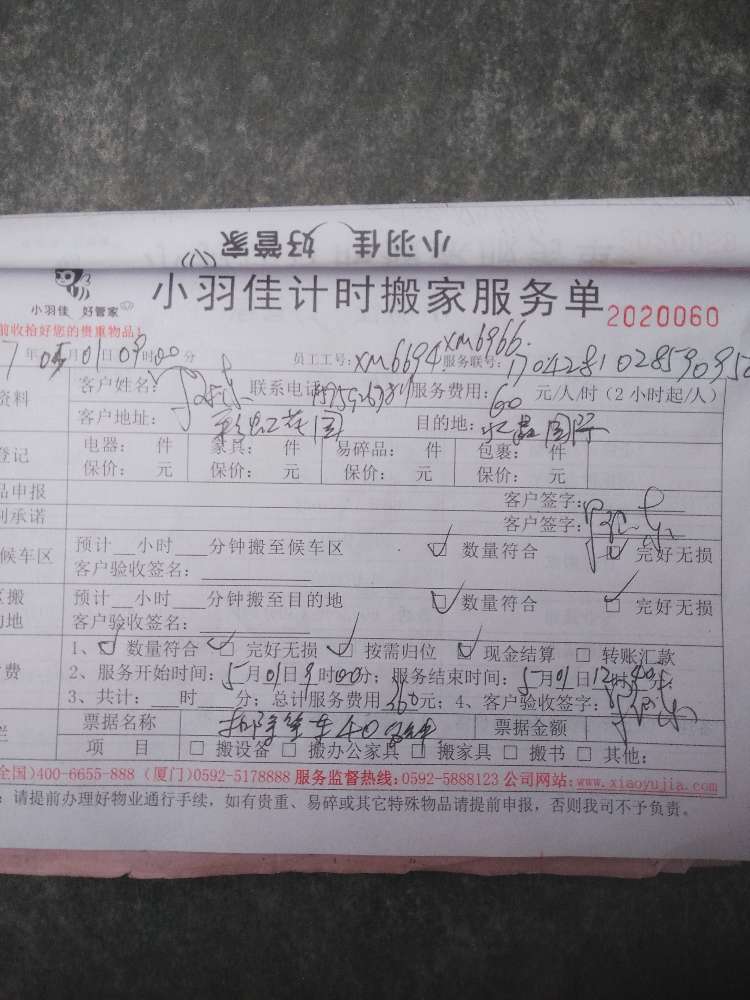 小羽佳 好管家
小羽佳 好管家
小羽佳计时搬家服务单 2020060
前收拾好您的贵重物品!
7年05月01日09时00分 员工工号:XM6694 XM6966 服务联号:
资料 客户姓名: 联系电话 服务费用:60元/人/时(2小时起/人)
客户地址:彩虹花园 目的地:水晶国际
登记 电器: 件 家具: 件 易碎品: 件 包裹: 件
保价: 元 保价: 元 保价: 元 保价: 元
品申报 客户签字:
别承诺 客户签字:
候车区 预计__小时___分钟搬至候车区 数量符合 完好无损
客户验收签名:
搬 预计__小时___分钟搬至目的地 数量符合 完好无损
的地 客户验收签名:
1、 数量符合 完好无损 按需归位 现金结算 转账汇款
费 2、服务开始时间:5月01日9时00分;服务结束时间:5月01日12时40分;
3、共计:___时___分;总计服务费用360元;4、客户验收签字:
票据名称 扣除等车40分钟 票据金额
项 目 搬设备 搬办公家具 搬家具 搬书 其他:
全国)400-6655-888 (厦门)0592-5178888 服务监督热线:0592-5888123 公司网站:www.xiaoyujia.com
:请提前办理好物业通行手续,如有贵重、易碎或其它特殊物品请提前申报,否则我司不予负责。